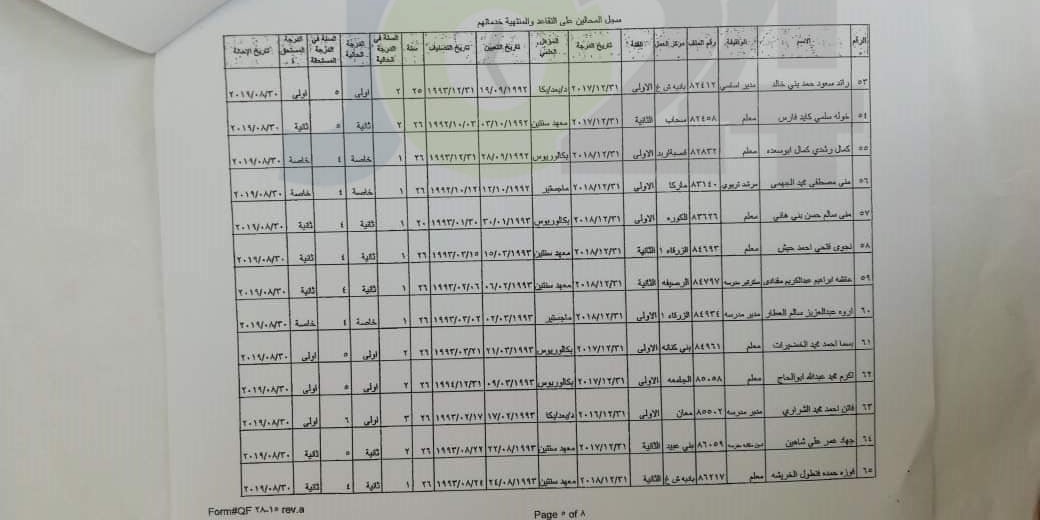 سجل المحالين على التقاعد والمنتهية خدماتهم
الرقم الاسم الوظيفة رقم الملف مركز العمل الفئة تاريخ الدرجة المؤهل العلمي تاريخ التعيين تاريخ التصنيف سنة السنة في الدرجة الحالية الدرجة الحالية السنة في الدرجة المستحقة الدرجة المستحقة تاريخ الاحالة
٥٣ رائد سعود حمد بني خالد مدير اساسي ٨٢٤١٢ باديه ش غ الاولى ٢٠١٧/١٢/٣١ ١٩/٠٩/١٩٩٢ ١٩٩٣/١٢/٣١ ٢٥ ٢ اولى ٥ اولى ٢٠١٩/٠٨/٣٠
٥٤ خوله سلمي كايد فارس معلم ٨٢٤٥٨ سحاب الثانية ٢٠١٧/١٢/٣١ معهد سنتين ٠٣/١٠/١٩٩٢ ١٩٩٢/١٠/٠٣ ٢٦ ٢ ثانية ٥ ثانية ٢٠١٩/٠٨/٣٠
٥٥ كمال رشدي كمال ابوسعده معلم ٨٢٨٣٢ قصبة اربد الاولى ٢٠١٨/١٢/٣١ بكالوريوس ٢٨/٠٩/١٩٩٢ ١٩٩٣/١٢/٣١ ٢٦ ١ خاصة ٤ خاصة ٢٠١٩/٠٨/٣٠
٥٦ منى مصطفى محمد الجهمي مرشد تربوي ٨٣١٤٠ ماركا الاولى ٢٠١٨/١٢/٣١ ماجستير ١٢/١٠/١٩٩٢ ١٩٩٢/١٠/١٢ ٢٦ ١ خاصة ٤ خاصة ٢٠١٩/٠٨/٣٠
٥٧ منى سالم حسن بني هاني معلم ٨٣٦٢٦ الكوره الاولى ٢٠١٨/١٢/٣١ بكالوريوس ٣٠/٠١/١٩٩٣ ١٩٩٣/٠١/٣٠ ٢٠ ١ ثانية ٤ ثانية ٢٠١٩/٠٨/٣٠
٥٨ نجوى فتحي احمد حبش معلم ٨٤٦٩٣ الزرقاء ١ الثانية ٢٠١٨/١٢/٣١ معهد سنتين ١٥/٠٣/١٩٩٣ ١٩٩٣/٠٣/١٥ ٢٦ ١ ثانية ٤ ثانية ٢٠١٩/٠٨/٣٠
٥٩ عائشه ابراهيم عبدالكريم مقدادي سكرتير مدرسه ٨٤٧٩٧ الرصيفه الثانية ٢٠١٨/١٢/٣١ معهد سنتين ٠٦/٠٢/١٩٩٣ ١٩٩٣/٠٢/٠٦ ٢٦ ١ ثانية ٤ ثانية ٢٠١٩/٠٨/٣٠
٦٠ اروه عبدالعزيز سالم العطار مدير مدرسه ٨٤٩٣٤ الزرقاء ١ الاولى ٢٠١٨/١٢/٣١ ماجستير ٠٢/٠٣/١٩٩٣ ١٩٩٣/٠٣/٠٢ ٢٦ ١ خاصة ٤ خاصة ٢٠١٩/٠٨/٣٠
٦١ بسما احمد محمد الخضيرات معلم ٨٤٩٦١ بني كنانه الاولى ٢٠١٧/١٢/٣١ بكالوريوس ٢١/٠٣/١٩٩٣ ١٩٩٣/٠٣/٢١ ٢٦ ٢ اولى ٥ اولى ٢٠١٩/٠٨/٣٠
٦٢ اكرم محمد عبدالله ابوالحاج معلم ٨٥٠٥٨ الجامعه الاولى ٢٠١٧/١٢/٣١ بكالوريوس ٠٩/٠٣/١٩٩٣ ١٩٩٤/١٢/٣١ ٢٦ ٢ اولى ٥ اولى ٢٠١٩/٠٨/٣٠
٦٣ فاتن احمد محمد الشراري مدير مدرسه ٨٥٥٠٢ معان الاولى ٢٠١٦/١٢/٣١ ١٧/٠٢/١٩٩٣ ١٩٩٣/٠٢/١٧ ٢٦ ٣ اولى ٦ اولى ٢٠١٩/٠٨/٣٠
٦٤ جهاد عمر علي شاهين ٨٦٠٥٩ بني عبيد الثانية ٢٠١٧/١٢/٣١ معهد سنتين ٢٢/٠٨/١٩٩٣ ١٩٩٣/٠٨/٢٢ ٢٦ ٢ ثانية ٥ ثانية ٢٠١٩/٠٨/٣٠
٦٥ فوزه حمده فنطول الخريشه معلم ٨٦٢١٧ باديه ش غ الثانية ٢٠١٨/١٢/٣١ معهد سنتين ٢٤/٠٨/١٩٩٣ ١٩٩٣/٠٨/٢٤ ٢٦ ١ ثانية ٤ ثانية ٢٠١٩/٠٨/٣٠
Form#QF ٢٨-١٥ rev.a
Page ٥ of ٨